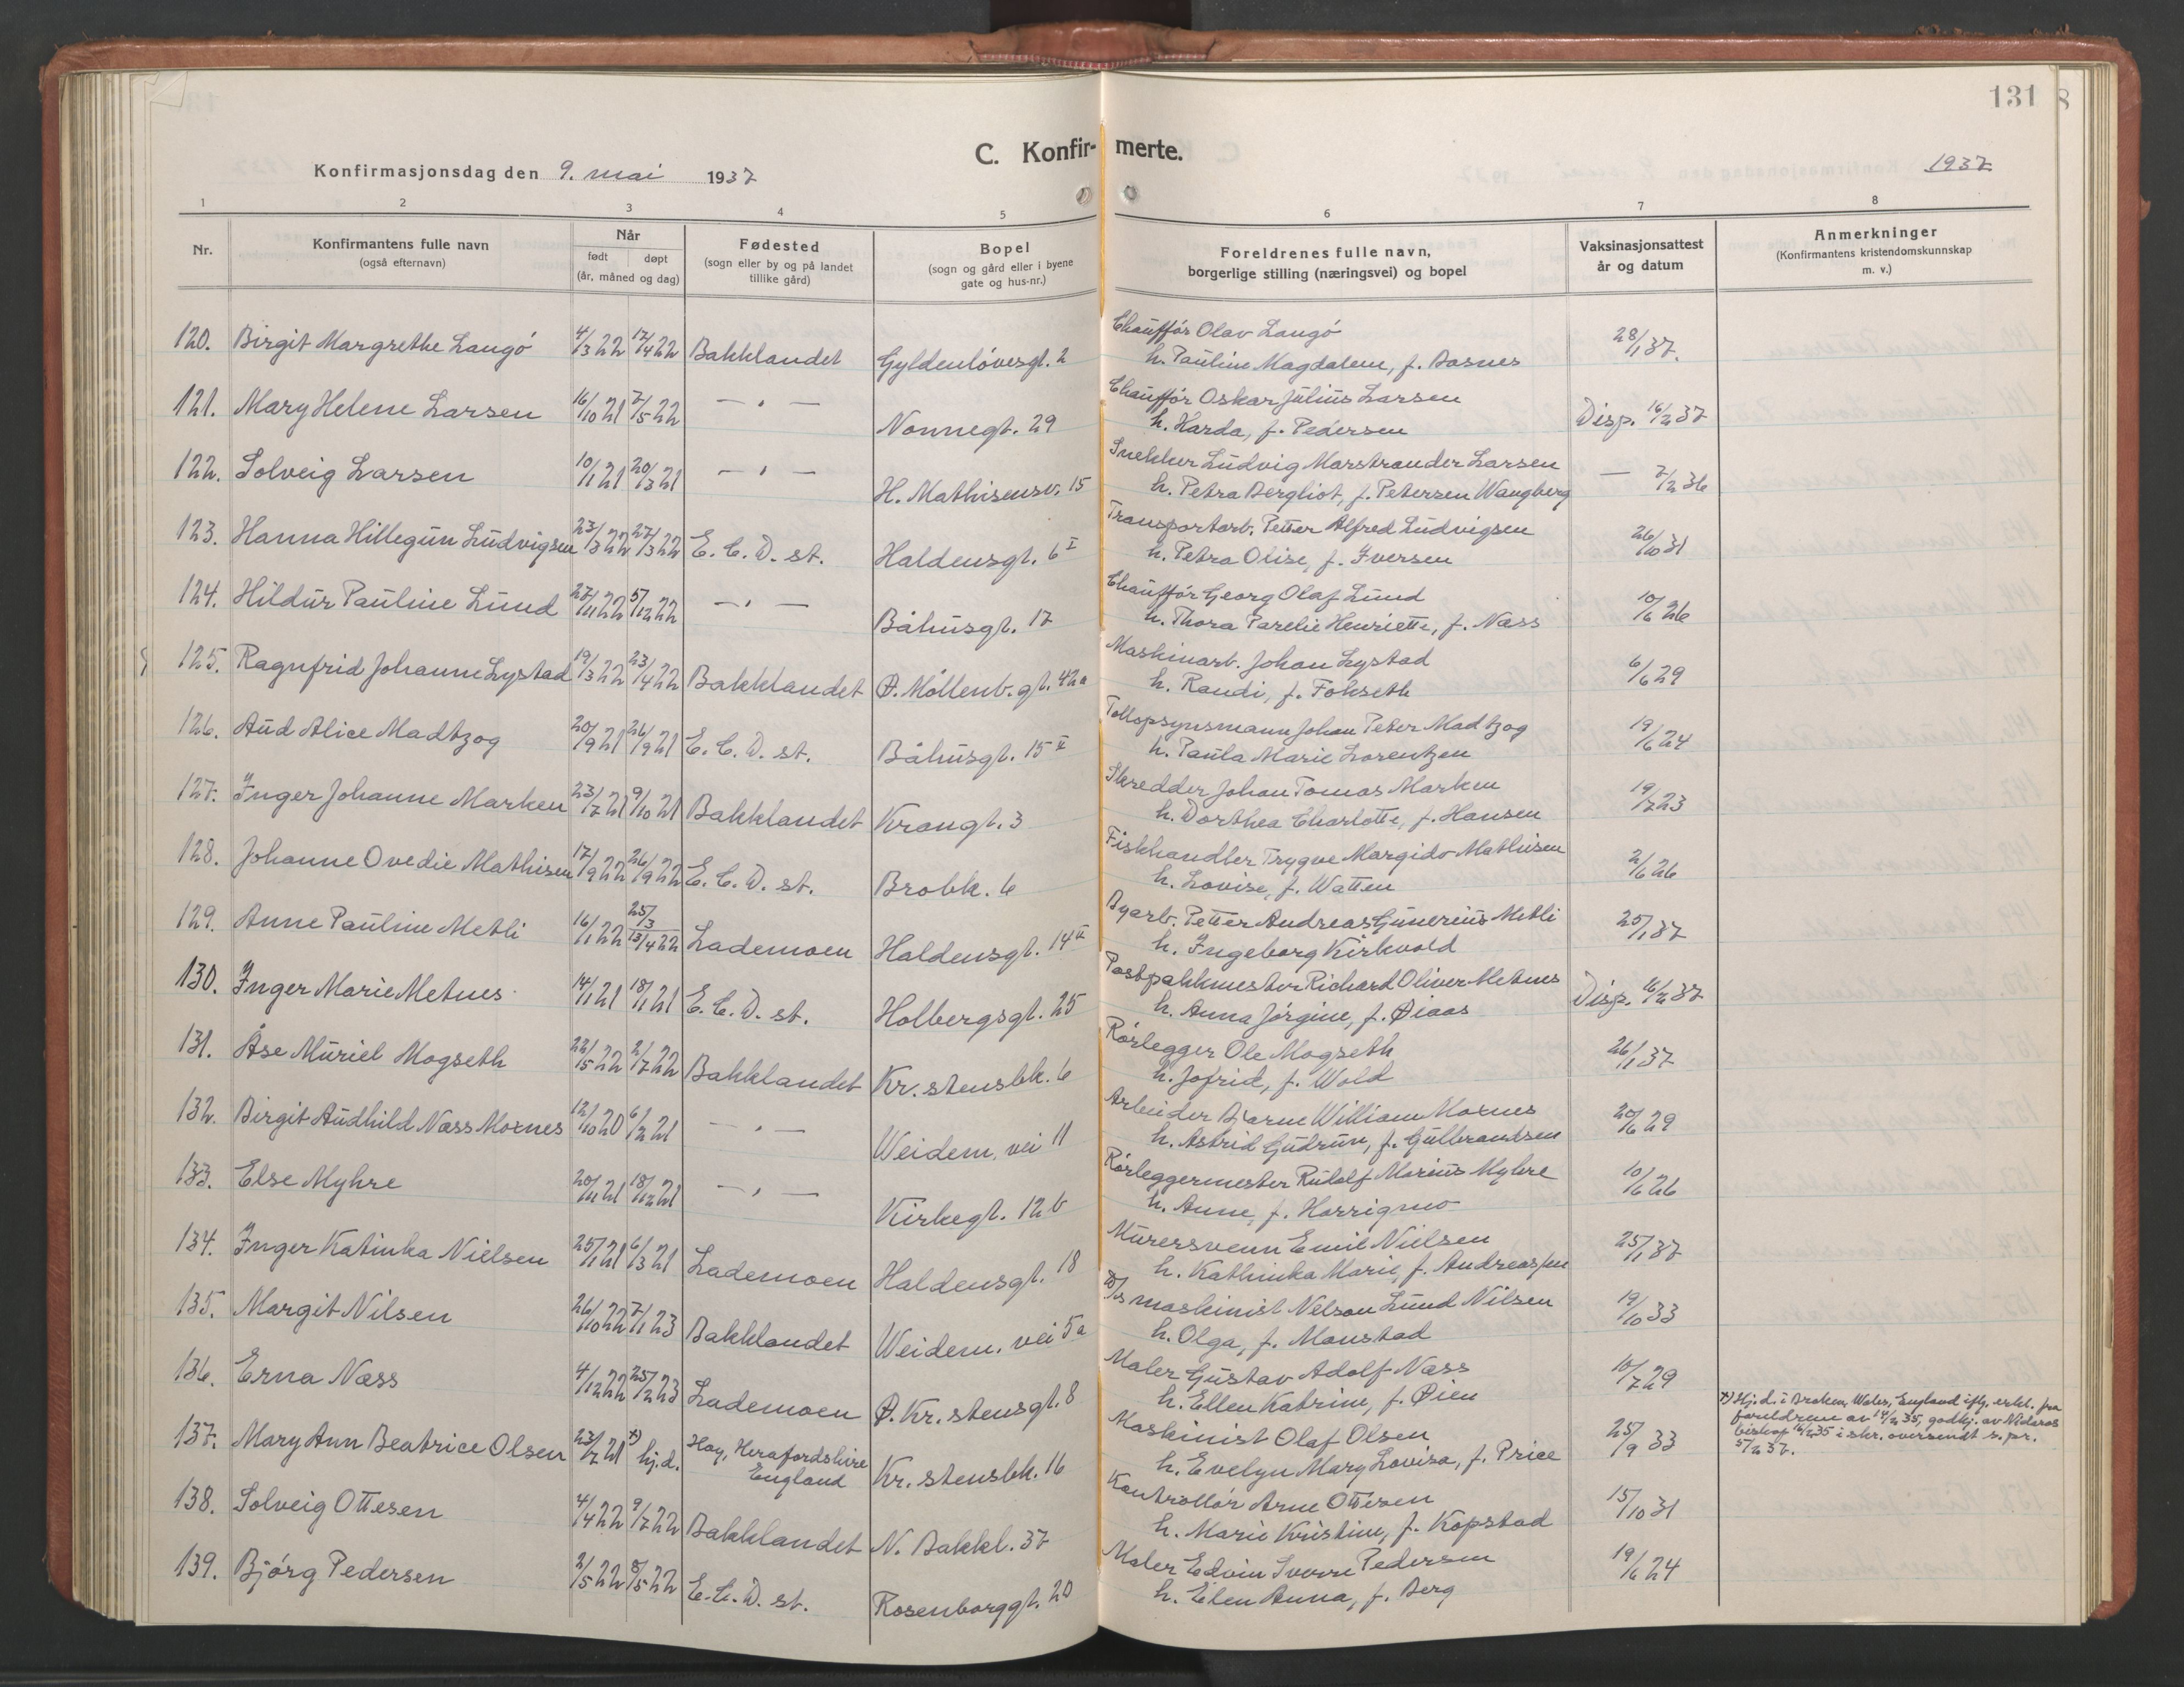 131
C. Konfir- merte.
Konfirmasjonsdag den 9. mai 1937
1937
1 2 3 4 5 6 7 8
Nr.
Konfirmantens fulle navn
(også efternavn)
Når
født døpt
(år, måned og dag)
Fødested
(sogn eller by og på landet
tillike gård)
Bopel
(sogn og gård eller i byene
gate og hus-nr.)
Foreldrenes fulle navn,
borgerlige stilling (næringsvei) og bopel
Vaksinasjonsattest
år og datum
Anmerkninger
(Konfirmantens kristendomskunnskap
m. v.)
120. Birgit Margrethe Langö 4/3 22 17/4 22 Bakklandet Gyldenlövesgt. 2 Chaufför Olav Langö 28/1 37.
h. Pauline Magdalene, f. Aasnes
121. Mary Helene Larsen 16/10 21 7/5 22 — " — Nonnegt. 29 Chaufför Oskar Julius Larsen Disp. 16/2 37
h. Harda, f. Pedersen
122. Solveig Larsen 10/1 21 20/3 21 — " — H. Mathisensv. 15 Snekker Ludvig Marstrander Larsen — 7/2 36
h. Petra Bergliot, f. Petersen Wangberg
123. Hanna Hillegun Ludvigsen 23/3 22 27/3 22 E. C. D. st. Haldensgt. 6 I Transportarb. Petter Alfred Ludvigsen 26/10 31
h. Petra Olise, f. Iversen
124. Hildur Pauline Lund 27/11 22 5/12 22 — " — Båhusgt. 17 Chaufför Georg Olaf Lund 10/6 26
h. Thora Parelie Henriette, f. Næss
125. Ragnfrid Johanne Lystad 19/3 22 23/4 22 Bakklandet Ø. Möllenb. gt. 42a Maskinarb. Johan Lystad 6/6 29
h. Randi, f. Fokseth
126. Aud Alice Madtzog 20/9 21 26/9 21 E. C. D. st. Båhusgt. 15 II Tollopsynsmann Johan Peter Madtzog 19/6 24
h. Paula Marie Lorentzen
127. Inger Johanne Marken 23/7 21 9/10 21 Bakklandet Krangt. 3 Skredder Johan Tomas Marken 19/7 23
h. Dorthea Charlotte, f. Hansen
128. Johanne Ovedie Mathisen 17/9 22 26/9 22 E. C. D. st. Brobk. 6 Fiskhandler Trygve Margido Mathisen 2/6 26
h. Lovise, f. Watten
129. Anne Pauline Metli 16/1 22 25/3 13/4 22 Lademoen Haldensgt. 14 II Byarb. Petter Andreas Gunerius Metli 25/1 37
h. Ingeborg Kirkvold
130. Inger Marie Metnes 14/1 21 18/1 21 E. C. D. st. Holbergsgt. 25 Postpakkmester Richard Oliver Metnes Disp. 16/2 37
h. Anna Jörgine, f. Øiaas
131. Åse Muriel Mogseth 22/5 22 2/7 22 Bakklandet Kr. stensbk. 6 Rörlegger Ole Mogseth 26/1 37
h. Jofrid, f. Wold
132. Birgit Audhild Næss Moxnes 12/10 20 6/2 21 — " — Weidem. vei 11 Arbeider Bjarne William Moxnes 20/6 29
h. Astrid Gudrun, f. Gulbrandsen
133. Else Myhre 20/11 21 18/12 21 — " — Kirkegt. 12 b Rörleggermester Rudolf Marius Myhre 10/6 26
h. Anne, f. Horrigmo
134. Inger Katinka Nielsen 25/1 21 6/3 21 Lademoen Haldensgt. 18 Murersvenn Emil Nielsen 25/1 37
h. Kathinka Marie, f. Andreassen
135. Margit Nilsen 26/10 22 7/1 23 Bakklandet Weidem. vei 5a D/s maskinist Nelson Lund Nilsen 19/10 33
h. Olga, f. Monstad
136. Erna Næss 4/12 22 25/2 23 Lademoen Ø. Kr. stensgt. 8 Maler Gustav Adolf Næss 10/7 29
h. Ellen Katrine, f. Øien
137. Mary Ann Beatrice Olsen 23/7 21 x) hj. d. Hay, Herafordshire Kr. stensbk. 16 Maskinist Olaf Olsen 25/9 33
England h. Evelyn Mary Lovisa, f. Price
x) Hj. d. i Wales, England iflg. erkl. fra
foreldrene av 14/2 35, godkj. av Nidaros
biskop 16/2 35 i skr. oversendt s. pr.
5/2 37.
138. Solveig Ottesen 4/4 22 9/7 22 Bakklandet N. Bakkl. 37 Kontrollör Arne Ottesen 15/10 31
h. Marie Kristine, f. Kopstad
139. Bjørg Pedersen 2/5 22 8/5 22 E. C. D. st. Rosenborggt. 20 Maler Edvin Sverre Pedersen 19/6 24
h. Elen Anna, f. Berg